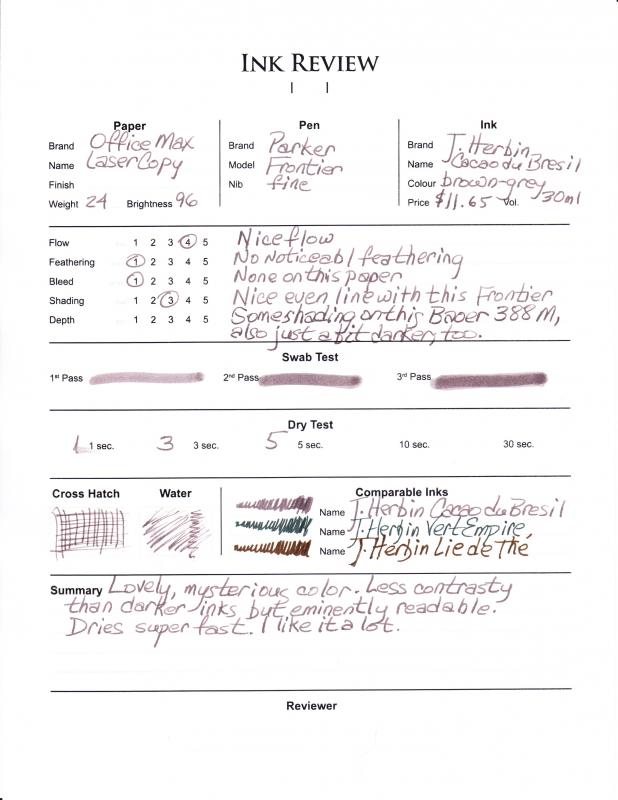 INK REVIEW
Paper Pen Ink
Brand Office Max Brand Parker Brand J. Herbin
Name LaserCopy Model Frontier Name Cacao du Bresil
Finish Nib fine Colour brown-grey
Weight 24 Brightness 96 Price $11.65 Vol. 30ml
Flow 1 2 3 4 5 Nice flow
Feathering 1 2 3 4 5 No noticeabl feathering
Bleed 1 2 3 4 5 None on this paper
Shading 1 2 3 4 5 Nice even line with this Frontier
Depth 1 2 3 4 5 Some shading on this Baoer 388 M,
also just a bit darker, too.
Swab Test
1st Pass 2nd Pass 3rd Pass
Dry Test
1 1 sec. 3 3 sec. 5 5 sec. 10 sec. 30 sec.
Cross Hatch Water Comparable Inks
Name J. Herbin Cacao du Bresil
Name J. Herbin Vert Empire
Name J. Herbin Lie de Thé
Summary Lovely, mysterious color. Less contrasty
than darker inks but eminently readable.
Dries super fast. I like it a lot.
Reviewer